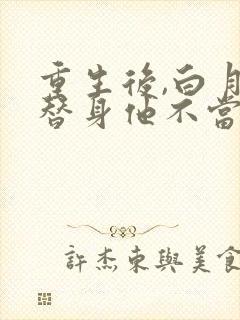 重生後,白月
替身他不當
許杰東與美食